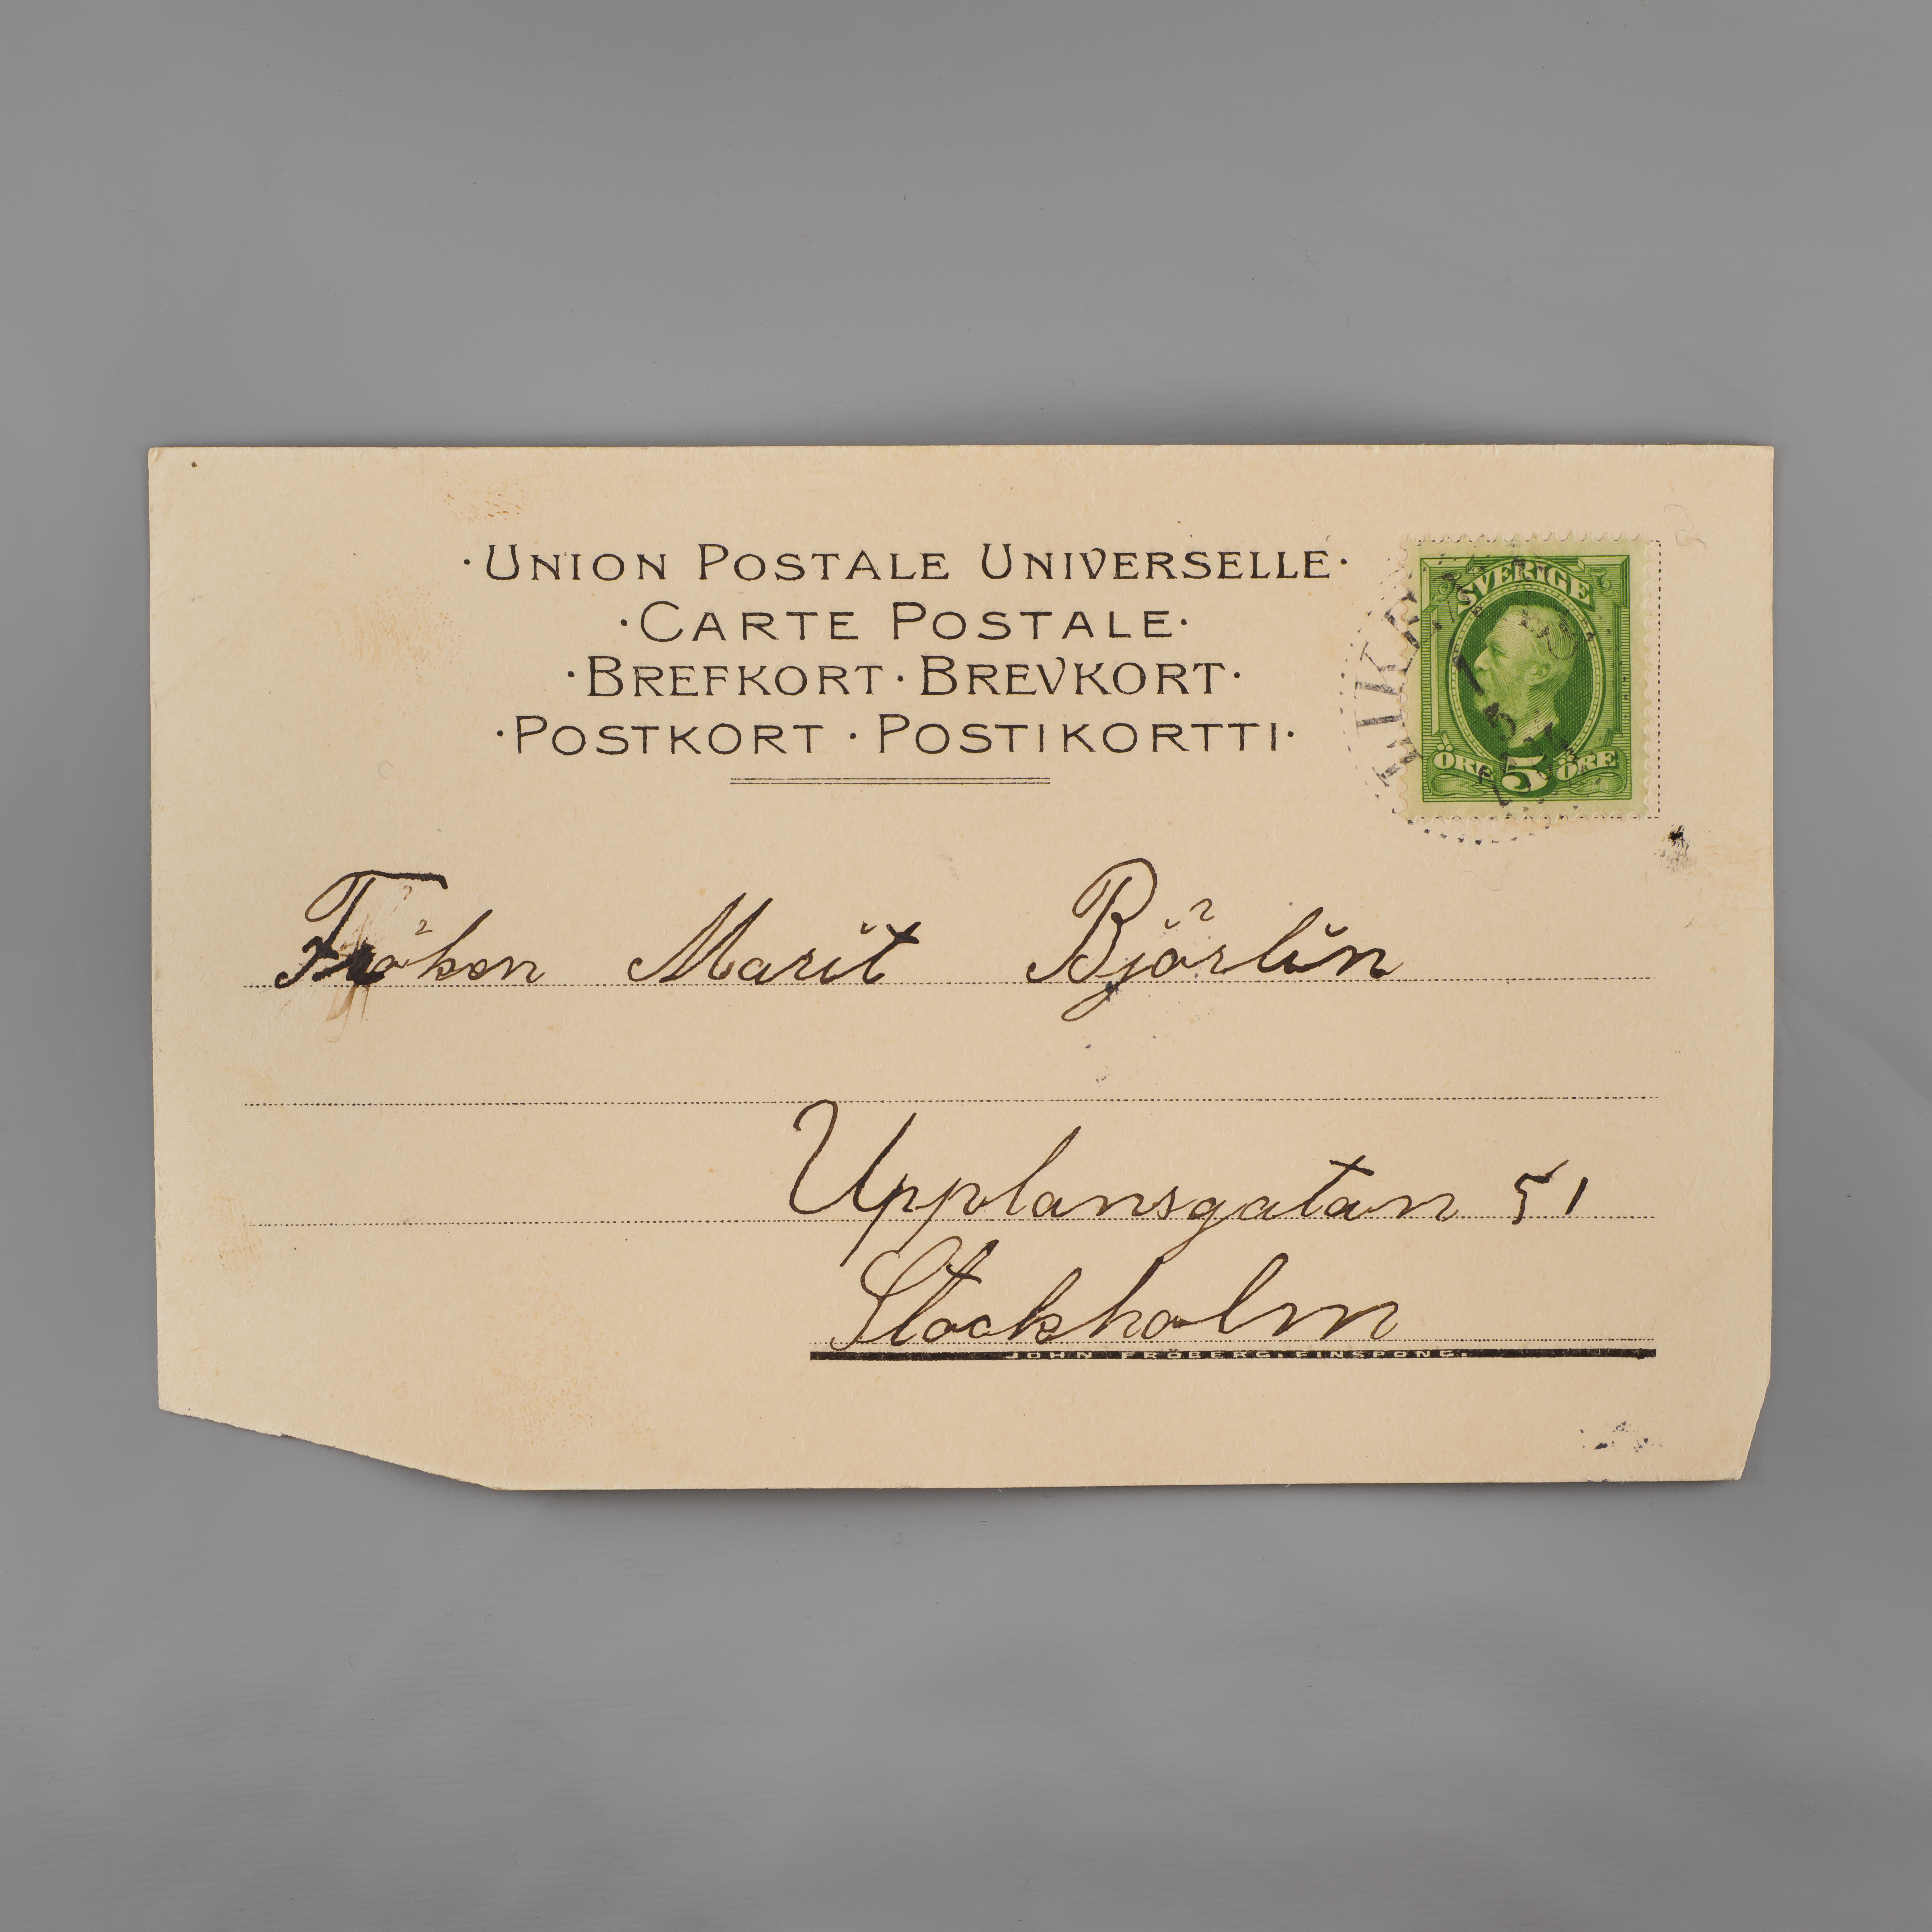 · UNION POSTALE UNIVERSELLE ·
· CARTE POSTALE ·
· BREFKORT · BREVKORT ·
· POSTKORT · POSTIKORTTI ·
SVERIGE
ÖRE 5 ÖRE
Fröken Marit Björlin
Upplansgatan 51
Stockholm
JOHN FRÖBERG, FINSPONG.